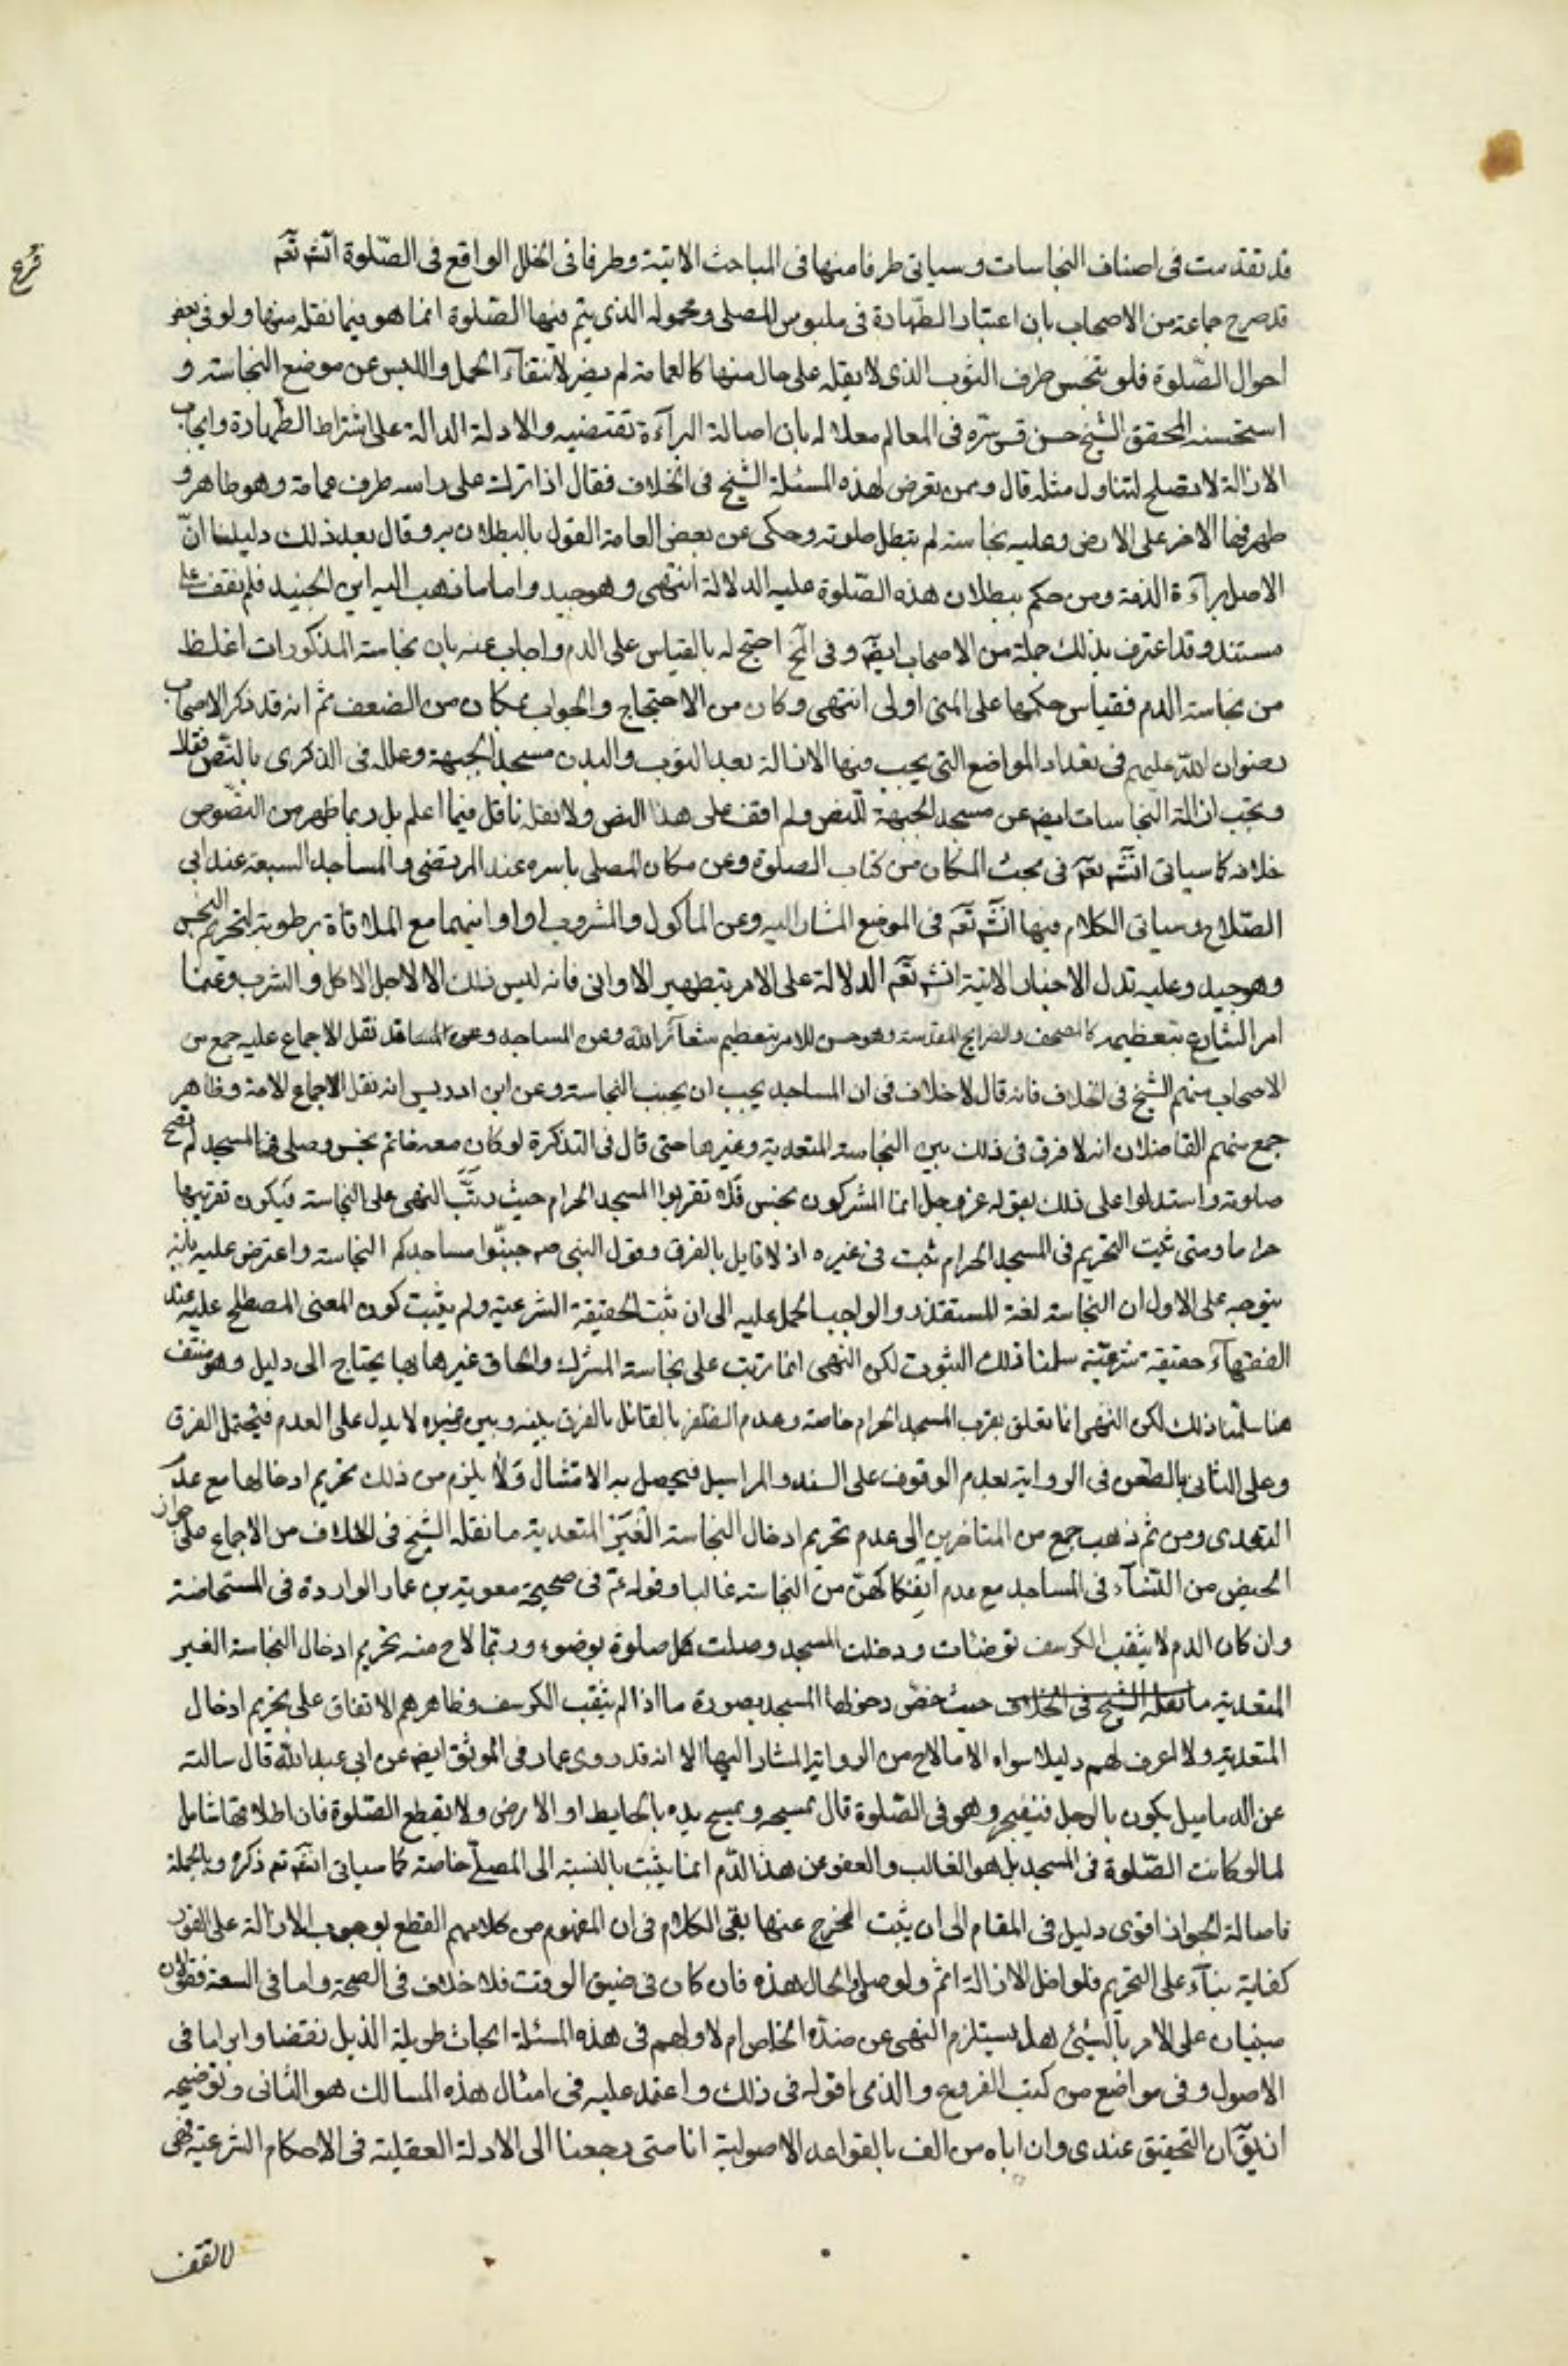 قد تقدمت فى اصناف النجاسات وسياتى طرفا منها فى المباحث الاتية وطرفا فى الخلل الواقع فى الصّلوة انش تعَ
فرع
قد صرح جماعة من الاصحاب بان اعتبار الطّهارة فى ملبوس المصلى ومحموله الذى يتم فيها الصّلوة انما هو فيما نقله منها ولو فى بعض
احوال الصّلوة فلو تنجس طرف الثوب الذى لا يقله على حال منها كالعمامة لم يضر لانتقاء الحمل واللبس عن موضع النجاسة و
استحسنه المحقق الشيخ حسن قس سّره فى المعالم معللا له بان اصالة البرآءة تقتضيه والادلة الدالة على اشتراط الطّهارة وايجاب
الازالة لا تصلح لتناول مثله قال وممن تعرض لهذه المسئلة الشيخ فى الخلاف فقال اذا ترك على راسه طرف عمامة وهو طاهر و
طهرفها الاخر على الارض وعليه نجاسة لم تبطل صلوته وحكى عن بعض العامة القول بالبطلان به وقال بعد ذلك دليلنا انّ
الاصل برآءة الذمة ومن حكم ببطلان هذه الصّلوة عليه الدلالة انتهى وهو جيد واما ما ذهب اليه ابن الجنيد فلم نقف على
مستند وقد اعترف بذلك جملة من الاصحاب ايضَ وفى المخ احتج له بالقياس على الدم واجاب عنه بان نجاسة المذكورات اغلظ
من نجاسة الدم فقياس حكمها على المنى اولى انتهى وكان من الاحتجاج والجواب بمكان من الضعف ثم انه قد ذكر الاصحاب
رضوان اللّه عليهم فى تعداد المواضع التى يجب فيها الازالة بعد الثوب والبدن مسجد الجبهة وعلله فى الذكرى بالنّص فقال
وتجب ازالة النجاسات ايض عن مسجد الجبهة للنص ولم اقف على هذا النص ولا نقله ناقل فيما اعلم بل ربما ظهر من النصّوص
خلافه كما سياتى انشَ تعَ فى مبحث المكان من كتاب الصلوة وعن مكان المصلى باسره عند المرتضى والمساجد السبعة عند ابى
الصّلاح وسياتى الكلام فيها انشَ تعَ فى الموضع المشار اليه وعن الماكول والمشروب او اوانيهما مع الملاقاة برطوبة لتحريم النجس
وهو جيد وعليه تدل الاخبار الاتية انش تعَ الدلالة على الامر بتطهير الاوانى فانه ليس ذلك الا لاجل الاكل والشرب وعما
امر الشارع بتعظيمه كالمصحف والضرايح المقدسة وهو حسن للامر بتعظيم شعآئر اللّه وعن المساجد وعن المسا قد نقل الاجماع عليه جمع من
الاصحاب منهم الشيخ فى الخلاف فانه قال لا خلاف فى ان المساجد يجب ان يجنب النجاسة وعن ابن ادريس انه نقل الاجماع للامة وظاهر
جمع منهم الفاضلان انه لا فرق فى ذلك بين النجاسة المتعدية وغيرها حتى قال فى التذكرة لو كان معه خاتم نجس وصلى فى المسجد لم تصح
صلوته واستدلوا على ذلك بقوله عز وجل انما المشركون نجس فلا تقربوا المسجد الحرام حيث رتّب النهى على النجاسة فيكون تقريبها
حراما ومتى ثبت التحريم فى المسجد الحرام ثبت فى غيره اذ لا قايل بالفرق وقول النبى ص جنبّوا مساجدكم النجاسة واعترض عليه بانه
يتوجه على الاول ان النجاسة لغة المستقذر والواجب الحمل عليه الى ان تثبت الحقيقة الشرعية ولم يثبت كون المعنى المصطلح عليه عند
الفقهآء حقيقة شرعيّة سلمنا ذلك الثبوت لكن النهى انما رتبت على نجاسة المشرك والحاق غيرها بها يحتاج الى دليل وهو منتف
هنا سلّمنا ذلك لكن النهى انما تعلق بقرب المسجد الحرام خاصة وعدم الظفر بالقائل بالفرق بينه وبين غيره لا يدل على العدم فيحتمل الفرق
وعلى الثانى بالطعن فى الرواية بعدم الوقوف على السند والمراسيل فيحصل به الامتثال ولا يلزم من ذلك تحريم ادخالها مع عدم
التعدى ومن ثم ذهب جمع من المتاخرين الى عدم تحريم ادخال النجاسة الغير المتعدية ما نقله الشيخ فى الخلاف من الاجماع على جواز
الحيض من النّسآء فى المساجد مع عدم انفكاكهنّ من النجاسة غالبا وقوله عَ فى صحيحة معوية بن عمار الواردة فى المستحاضة
وان كان الدم لا يثقب الكرسف توضئات ودخلت المسجد وصلت كل صلوة بوضوء وربما لاح منه تحريم ادخال النجاسة الغير
المتعدية ما نقله الشيخ فى الخلاف حيث خصّ دخولها المسجد بصورة ما اذا لم يثقب الكرسف وظاهرهم الاتفاق على تحريم ادخال
المتعدية ولا اعرف لهم دليلا سواه الا ما لاح من الرواية المشار اليها الا انه قد روى عمار فى الموثق ايض عن ابى عبد اللّه قال سالته
عن الدماميل يكون بالرجل فتنفجر وهو فى الصّلوة قال يمسحه ويمسح يده بالحايط او الارض ولا يقطع الصّلوة فان اطلاقها شامل
لما لو كانت الصّلوة فى المسجد بل هو الغالب والعفو عن هذا الدّم انما يثبت بالنسبة الى المصلّى خاصة كما سياتى انشَ تع ذكره وبالجملة
فاصالة الجواز اقوى دليل فى المقام الى ان يثبت المخرج عنها بقى الكلام فى ان المفهوم من كلامهم القطع بوجوب الازالة على الفور
كفاية بنآء على التحريم فلو اخل الازالة اثم ولو صلى والحال هذه فان كان فى ضيق الوقت فلا خلاف فى الصحة واما فى السعة فقولان
مبنيان على الامر بالشيئ هل يستلزم النهى عن ضدّه الخاص ام لا ولهم فى هذه المسئلة ابحاث طويلة الذيل نقضا وابراما فى
الاصول وفى مواضع من كتب الفروع والذى اقوله فى ذلك واعتمد عليه فى امثال هذه المسالك هو الثانى وتوضيحه
انه يقَ ان التحقيق عندى وان اباه من الف بالقواعد الاصولية انا متى رجعنا الى الادلة العقلية فى الاحكام الشرعية فهى
لا تقف